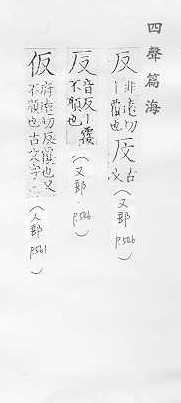 四聲篇海
反 非遠切
丨覆也 𠬡 古
文 (又部 P526)
反 音反丨覆
不順也 (又部 P526)
仮 府遠切反覆也又
不順也古文字二 (人部 P561)